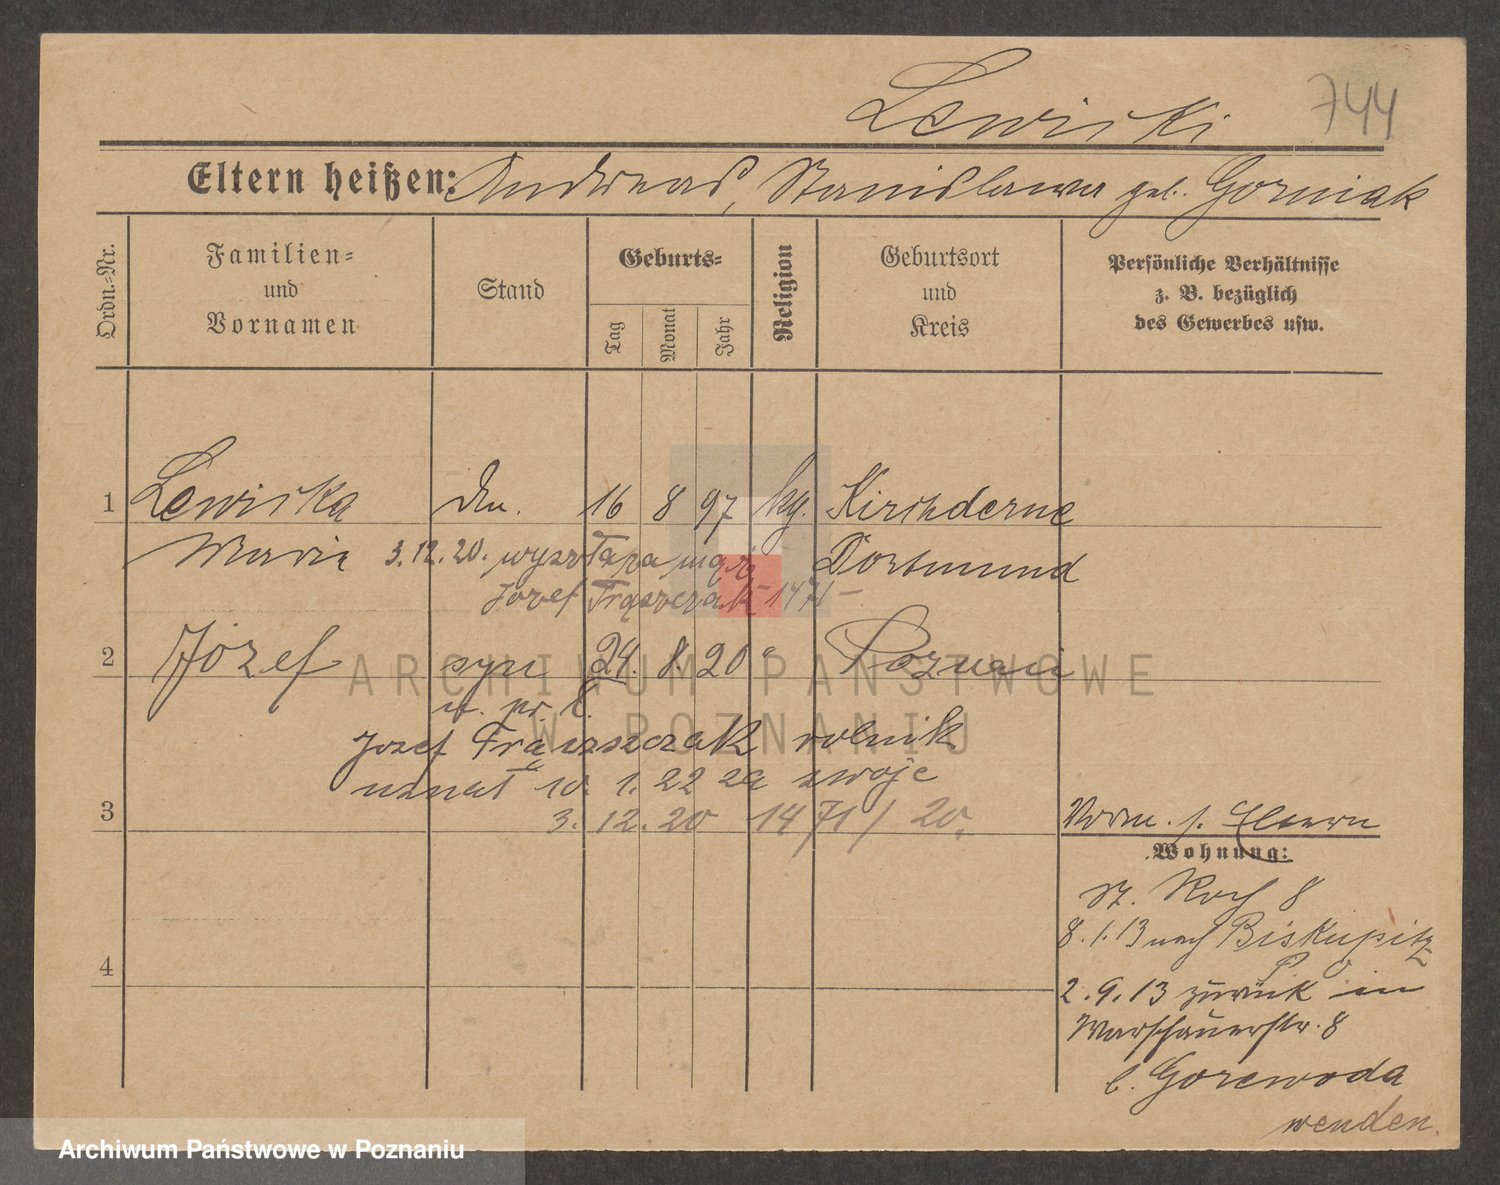 Lewiski
744
Eltern heißen: Andreas, Stanislawa geb. Gorniak
Ordn.=Nr.
Familien=
und
Vornamen
Stand
Geburts=
Tag
Monat
Jahr
Religion
Geburtsort
und
Kreis
Persönliche Verhältnisse
z. B. bezüglich
des Gewerbes usw.
1 Lewiska 16 8 97 kg. Kirchderne
Marie 3.12.20. wyszła za mąż Dortmund
Jozef Frąszczak 1471
2 Józef syn 24. 8. 20 " Poznań
Jozef Frąszczak rolnik
uznał 10. 1. 22 za swoje
3. 12. 20 1471/20.
3
Vorm. s. Eltern
Wohnung:
St. Roch 8
8.1.13 nach Biskupitz
2.9.13 zurück in
Warschauerstr. 8
b. Gorewoda
wenden.
4
ARCHIWUM PAŃSTWOWE
W POZNANIU
Archiwum Państwowe w Poznaniu